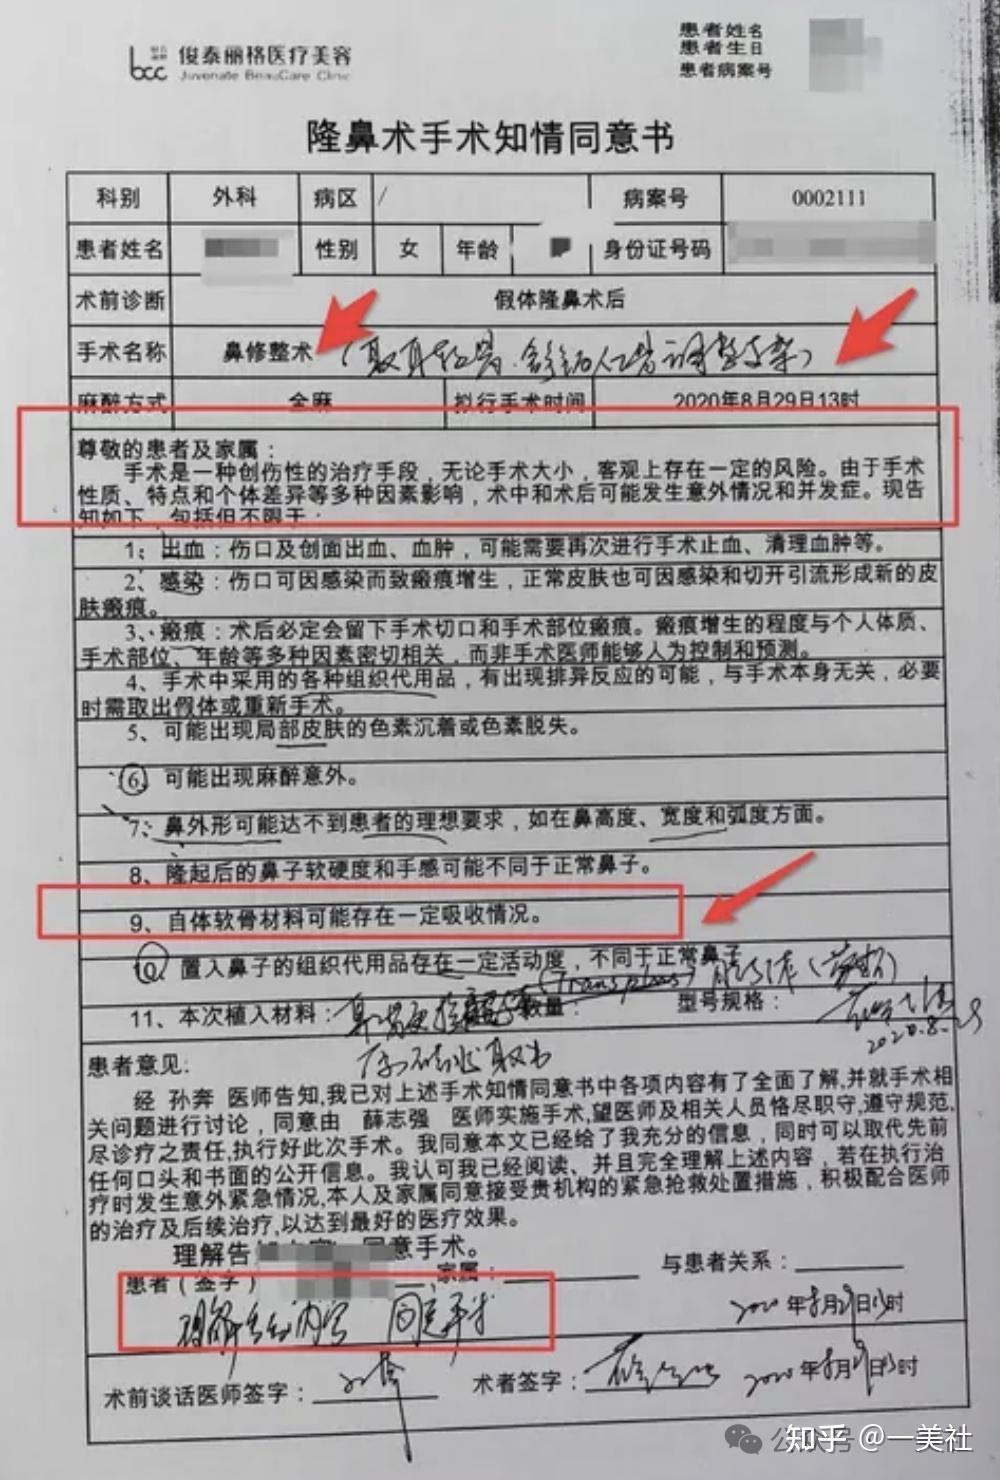 bcc 俊泰丽格医疗美容
Juvenate BeauCare Clinic
患者姓名
患者生日
患者病案号
隆鼻术手术知情同意书
科别 外科 病区 / 病案号 0002111
患者姓名 性别 女 年龄 身份证号码
术前诊断 假体隆鼻术后
手术名称 鼻修整术 (取耳软骨.
麻醉方式 全麻 拟行手术时间 2020年8月29日13时
尊敬的患者及家属：
手术是一种创伤性的治疗手段，无论手术大小，客观上存在一定的风险。由于手术
性质、特点和个体差异等多种因素影响，术中和术后可能发生意外情况和并发症。现告
知如下，包括但不限于：
1、出血：伤口及创面出血、血肿，可能需要再次进行手术止血、清理血肿等。
2、感染：伤口可因感染而致瘢痕增生，正常皮肤也可因感染和切开引流形成新的皮
肤瘢痕。
3、瘢痕：术后必定会留下手术切口和手术部位瘢痕。瘢痕增生的程度与个人体质、
手术部位、年龄等多种因素密切相关，而非手术医师能够人为控制和预测。
4、手术中采用的各种组织代用品，有出现排异反应的可能，与手术本身无关，必要
时需取出假体或重新手术。
5、可能出现局部皮肤的色素沉着或色素脱失。
6、可能出现麻醉意外。
7、鼻外形可能达不到患者的理想要求，如在鼻高度、宽度和弧度方面。
8、隆起后的鼻子软硬度和手感可能不同于正常鼻子。
9、自体软骨材料可能存在一定吸收情况。
10、置入鼻子的组织代用品存在一定活动度，不同于正常鼻子
11、本次植入材料： 数量： 型号规格：
2020.8.29
患者意见:
经 孙奔 医师告知,我已对上述手术知情同意书中各项内容有了全面了解,并就手术相
关问题进行讨论，同意由 薛志强 医师实施手术,望医师及相关人员恪尽职守,遵守规范,
尽诊疗之责任,执行好此次手术。我同意本文已经给了我充分的信息，同时可以取代先前
任何口头和书面的公开信息。我认可我已经阅读、并且完全理解上述内容，若在执行治
疗时发生意外紧急情况,本人及家属同意接受贵机构的紧急抢救处置措施，积极配合医师
的治疗及后续治疗,以达到最好的医疗效果。
理解告 同意手术。
患者（签字） 家属： 与患者关系：
理解告知内容 同意手术 2020年8月29日13时
术前谈话医师签字： 孙奔 术者签字： 2020年8月29日13时
知乎 @一美社